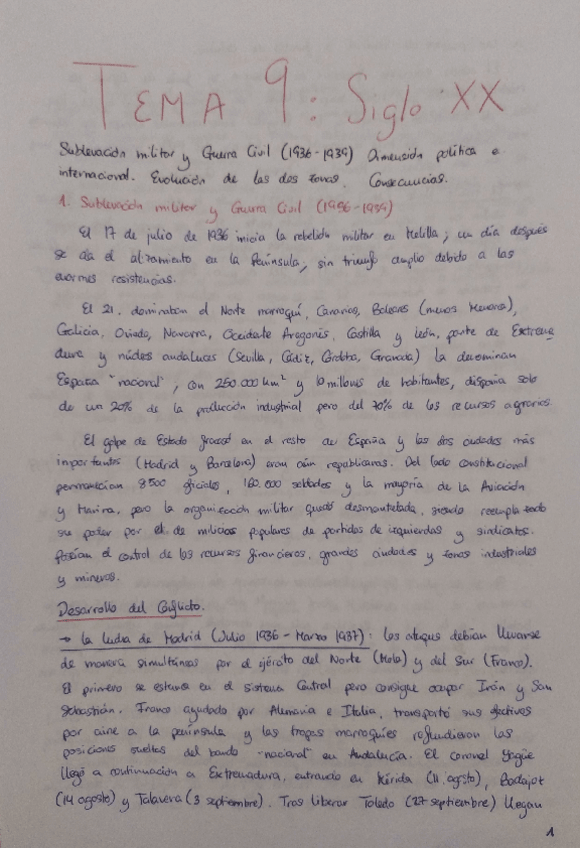 TEMA 9: Siglo XX
Sublevación militar y Guerra Civil (1936-1939) Dimensión política e
internacional. Evolución de las dos zonas. Consecuencias.
1. Sublevación militar y Guerra Civil (1936-1939)
El 17 de julio de 1936 inicia la rebelión militar en Melilla; un día después
se da el alzamiento en la Península, sin triunfo amplio debido a las
enormes resistencias.
El 21, dominaban el Norte marroquí, Canarias, Baleares (menos Menorca),
Galicia, Oviedo, Navarra, Occidente Aragonés, Castilla y León, parte de Extrema
dura y núcleos andaluces (Sevilla, Cádiz, Córdoba, Granada) la denominan
España "nacional", con 250.000 km² y 10 millones de habitantes, disponía solo
de un 20% de la producción industrial pero del 70% de los recursos agrarios.
El golpe de Estado fracasó en el resto de España y las dos ciudades más
importantes (Madrid y Barcelona) eran aún republicanas. Del lado constitucional
permanecían 8500 oficiales, 160.000 soldados y la mayoría de la Aviación
y Marina, pero la organización militar quedó desmantelada, siendo reemplazado
su poder por el de milicias populares de partidos de izquierdas y sindicatos.
Poseían el control de los recursos financieros, grandes ciudades y zonas industriales
y mineros.
Desarrollo del Conflicto.
→ La lucha de Madrid (Julio 1936 - Marzo 1937): los ataques debían llevarse
de manera simultánea por el ejército del Norte (Mola) y del Sur (Franco).
El primero se estanca en el Sistema Central pero consigue ocupar Irún y San
Sebastián. Franco ayudado por Alemania e Italia, transportó sus efectivos
por aire a la península y las tropas marroquíes refundieron las
posiciones sueltas del bando "nacional" en Andalucía. El coronel Yagüe
llegó a continuación a Extremadura, entrando en Mérida (11 agosto), Badajoz
(14 agosto) y Talavera (3 septiembre). Tras liberar Toledo (27 septiembre) llegan
1